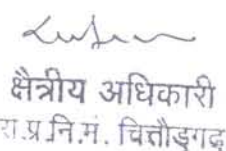 क्षैत्रीय अधिकारी
रा.प्र.नि.मं. चित्तौड़गढ़